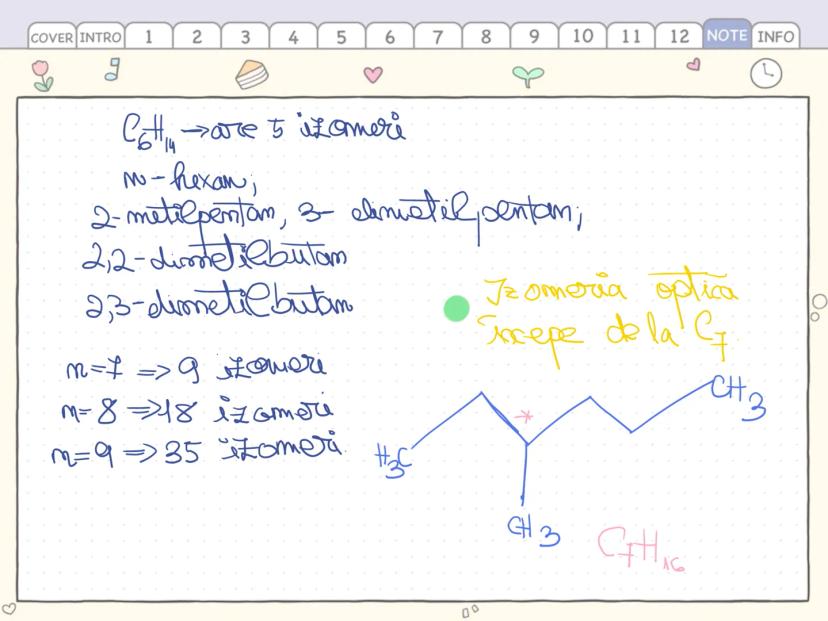 COVER INTRO 1 2 3 4 5 6 7 8 9 10 11 12 NOTE INFO
C₆H₁₄ → are 5 izomeri
n-hexan;
2-metilpentan, 3-dimetilpentan;
2,2-dimetilbutan
2,3-dimetilbutan
Izomeria optica
începe de la C₇
n=7 => 9 izomeri
n=8 => 18 izomeri
n=9 => 35 izomeri
CH₃
*
H₃C
CH₃
C₇H₁₆